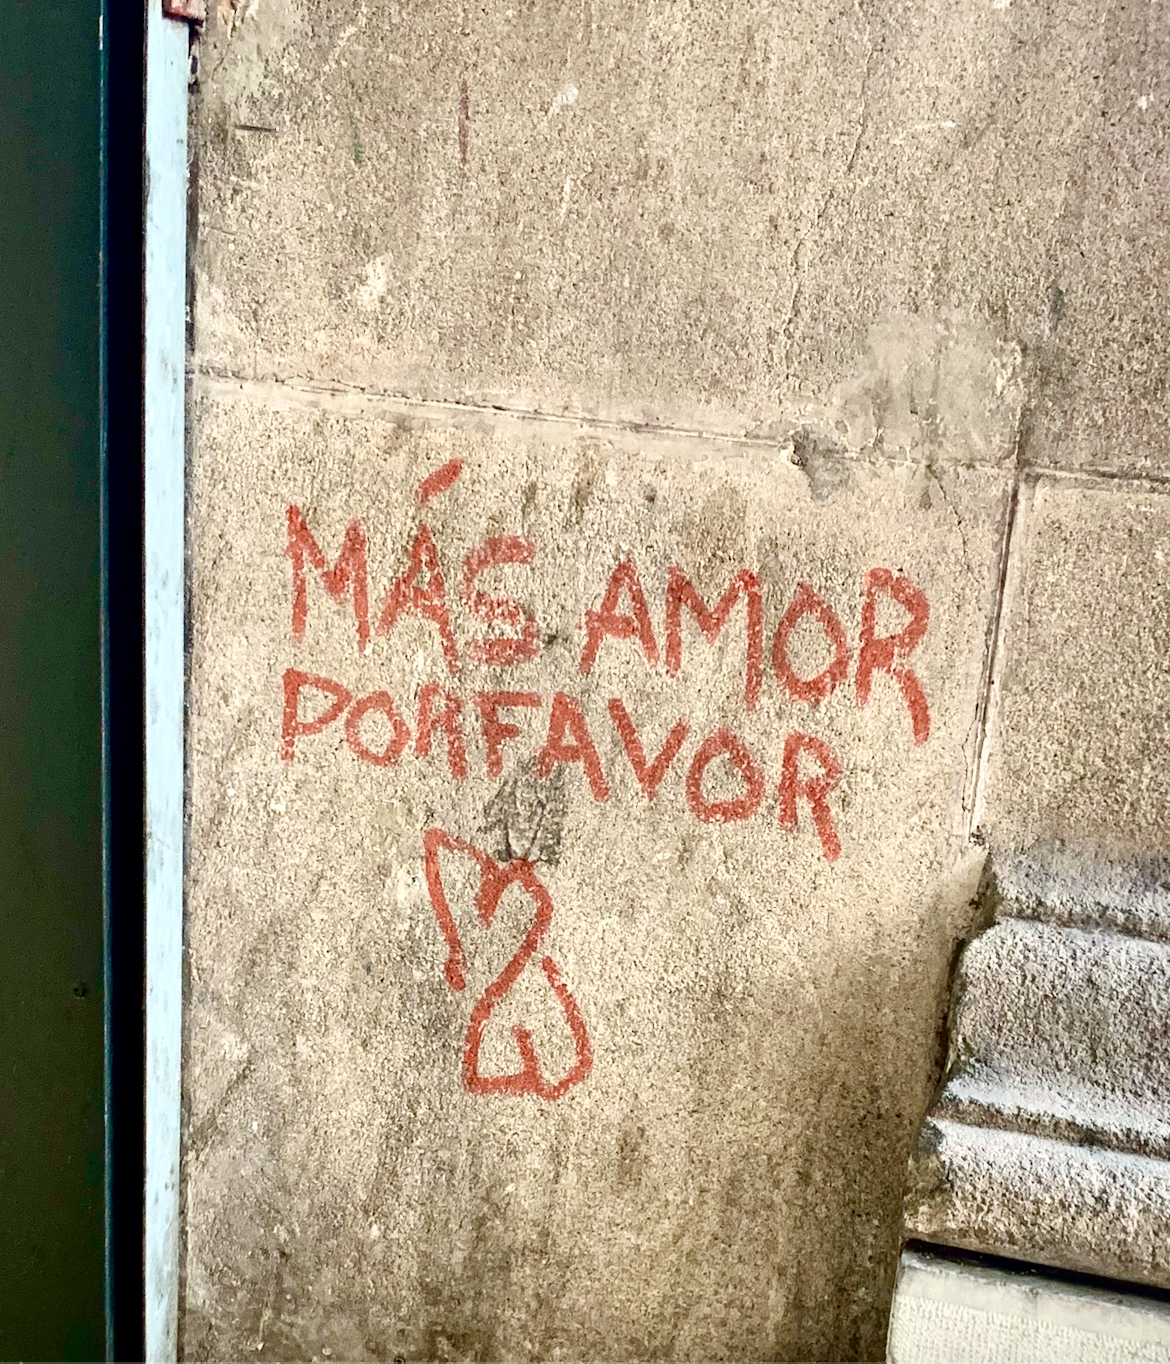 MÁS AMOR
PORFAVOR